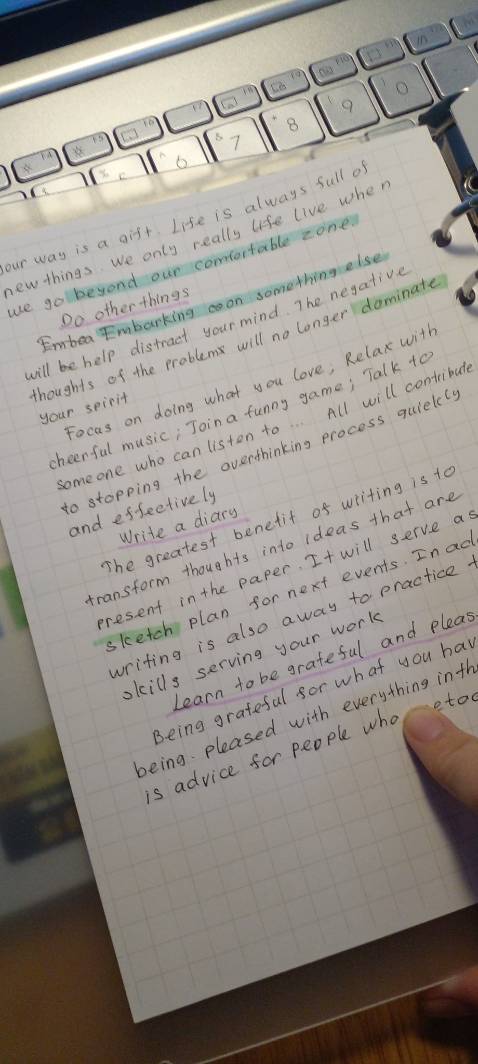 F4 F5 F6 F7 F8 F9 F10 F11
6 & 7 * 8 9 0
your way is a gift. Life is always full of
new things. we only really life live when
we go beyond our comfortable zone.
Do other things
Embea Embarking oo on something else
will be help distract your mind. The negative
thoughts of the problems will no longer dominate
your spirit
Focus on doing what you love; Relax with
cheerful music; Join a funny game; Talk to
someone who can listen to ... All will contribute
to stopping the overthinking process quickly
and effectively
Write a diary
The greatest benefit of writing is to
transform thoughts into ideas that are
present in the paper. It will serve as
sketch plan for next events. In ad
writing is also away to practice
skills serving your work
Learn to be grateful and pleas
Being grateful for what you hav
being. pleased with everything in th
is advice for people who